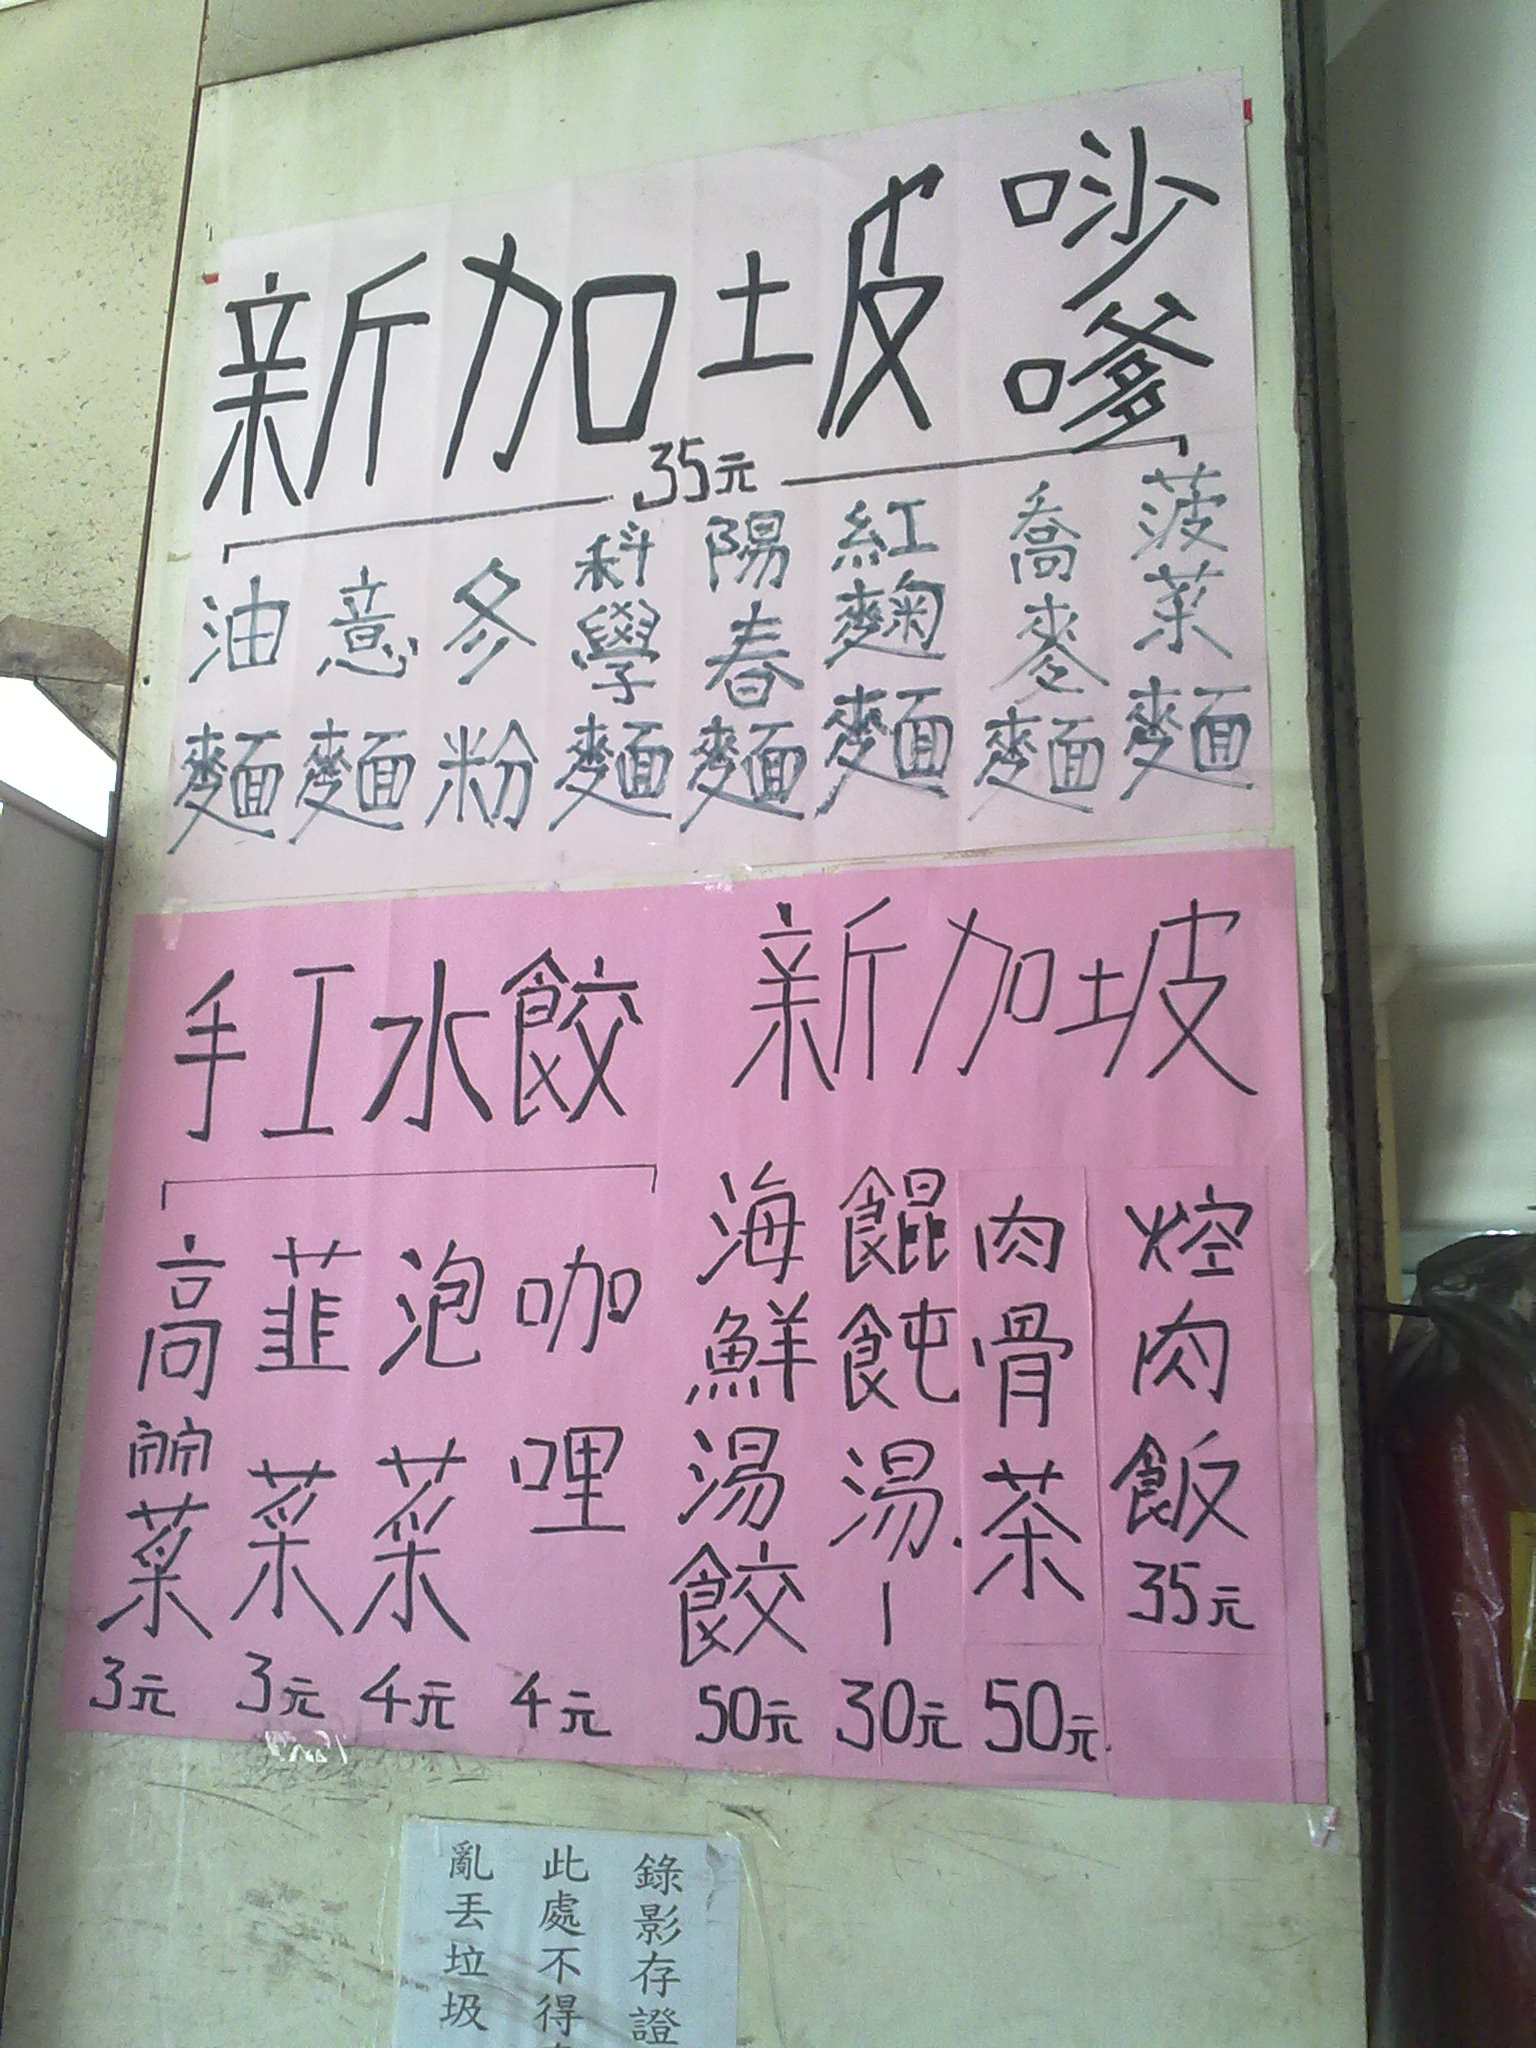 新加坡 唦嗲
35元
油麵
意麵
冬粉
科學麵
陽春麵
紅麴麵
喬麥麵
菠菜麵
手工水餃
高麗菜 3元
韮菜 3元
泡菜 4元
咖哩 4元
新加坡
海鮮湯餃 50元
餛飩湯 30元
肉骨茶 50元
焢肉飯 35元
錄影存證
此處不得
亂丟垃圾